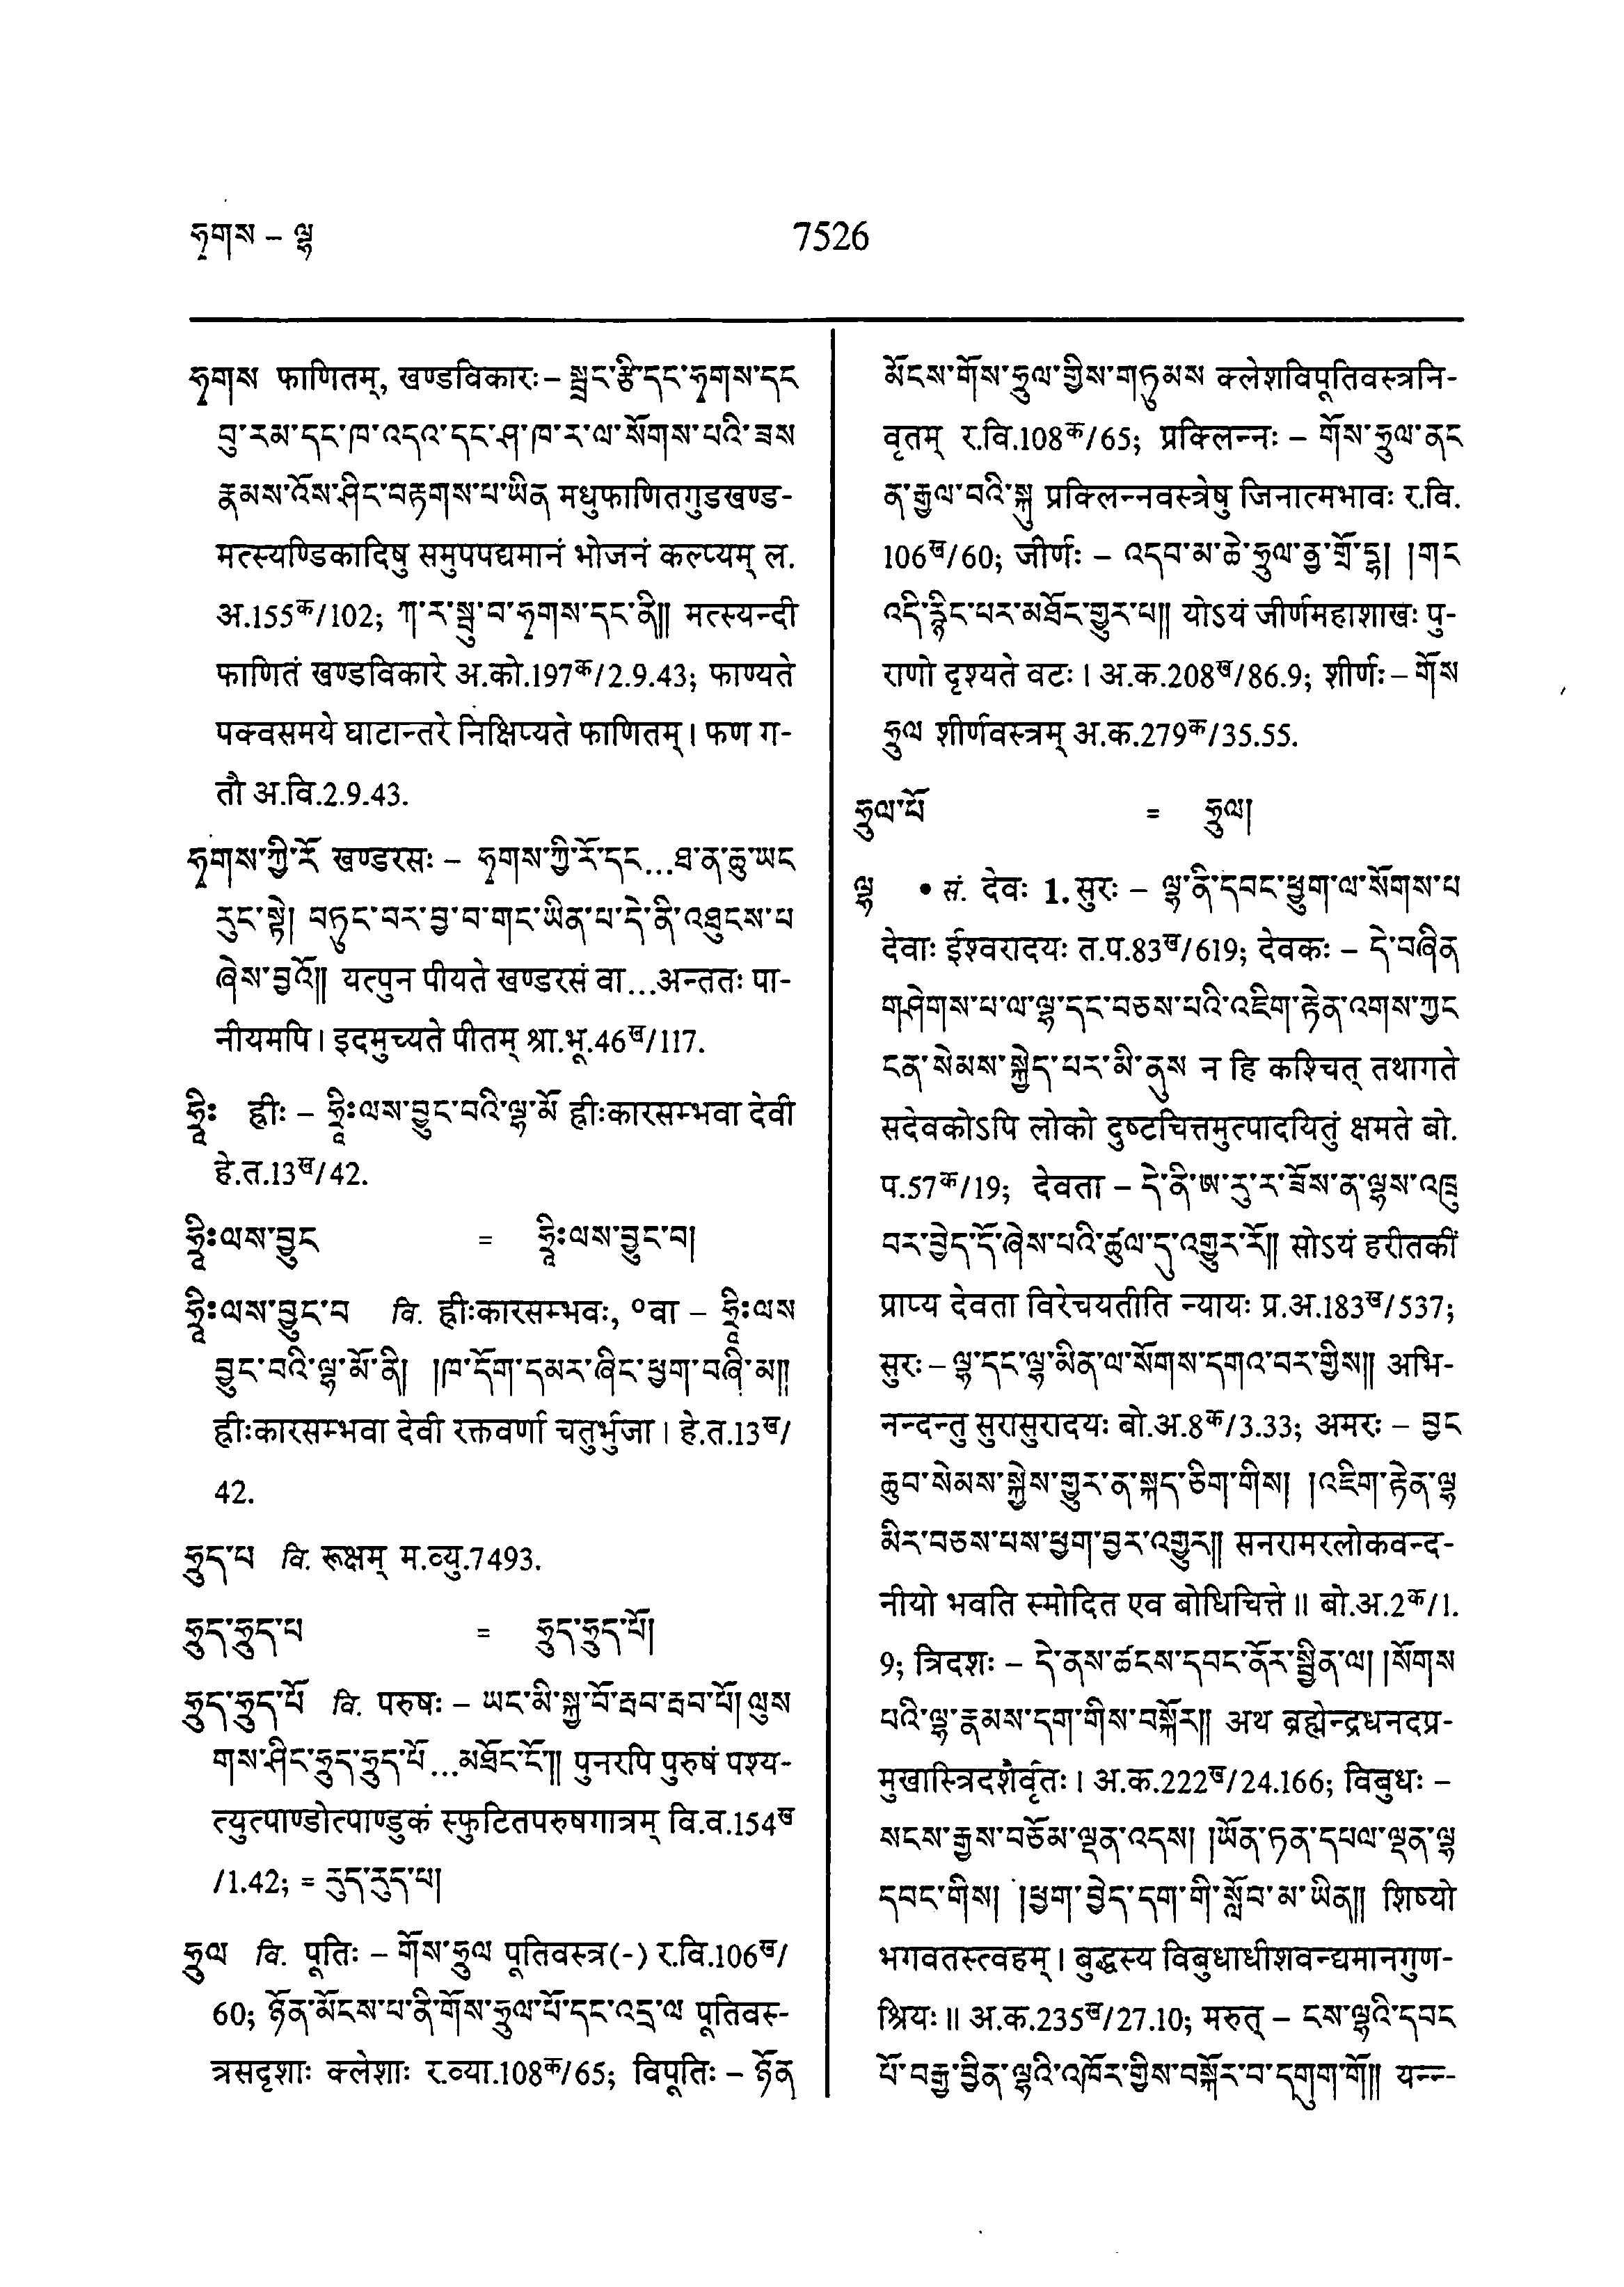 ཧྭགས – ལྷ
7526
ཧྭགས फाणितम्, खण्डविकारः– སྦྲང་རྩི་དང་ཧྭགས་དང
བུ་རམ་དང་ཁ་འདའ་དང་ཤ་ཁ་ར་ལ་སོགས་པའི་ཟས
རྣམས་འོས་ཤིང་བརྟགས་པ་ཡིན मधुफाणितगुडखण्ड-
मत्स्यण्डिकादिषु समुपपद्यमानं भोजनं कल्प्यम् ल.
अ.155क/102; ཀ་ར་སྦུ་བ་ཧྭགས་དང་ནི༎ मत्स्यन्दी
फाणितं खण्डविकारे अ.को.197क/2.9.43; फाण्यते
पक्वसमये घाटान्तरे निक्षिप्यते फाणितम्। फण ग-
तौ अ.वि.2.9.43.
ཧྭགས་ཀྱི་རོ खण्डरसः – ཧྭགས་ཀྱི་རོ་དང...ཐ་ན་ཆུ་ཡང
རུང་སྟེ། བཏུང་བར་བྱ་བ་གང་ཡིན་པ་དེ་ནི་འཐུངས་པ
ཞེས་བྱའོ༎ यत्पुन पीयते खण्डरसं वा...अन्ततः पा-
नीयमपि। इदमुच्यते पीतम् श्रा.भू.46ख/117.
ཧྲཱིཿ ह्रीः – ཧྲཱིཿལས་བྱུང་བའི་ལྷ་མོ ह्रीःकारसम्भवा देवी
हे.त.13ख/42.
ཧྲཱིཿལས་བྱུང = ཧྲཱིཿལས་བྱུང་བ།
ཧྲཱིཿལས་བྱུང་བ वि. ह्रीःकारसम्भवः, ०वा – ཧྲཱིཿལས
བྱུང་བའི་ལྷ་མོ་ནི། །ཁ་དོག་དམར་ཞིང་ཕྱག་བཞི་མ༎
ह्रीःकारसम्भवा देवी रक्तवर्णा चतुर्भुजा। हे.त.13ख/
42.
ཧྲུད་པ वि. रूक्षम् म.व्यु.7493.
ཧྲུད་ཧྲུད་པ = ཧྲུད་ཧྲུད་པོ།
ཧྲུད་ཧྲུད་པོ वि. परुषः – ཡང་མི་སྐྱ་བོ་རབ་རབ་པོ། ལུས
གས་ཤིང་ཧྲུད་ཧྲུད་པོ...མཐོང་ངོ༎ पुनरपि पुरुषं पश्य-
त्युत्पाण्डोत्पाण्डुकं स्फुटितपरुषगात्रम् वि.व.154ख
/1.42; = རུད་རུད་པ།
ཧྲུལ वि. पूतिः – གོས་ཧྲུལ पूतिवस्त्र(-) र.वि.106ख/
60; ཉོན་མོངས་པ་ནི་གོས་ཧྲུལ་པོ་དང་འདྲ་ལ पूतिवस्-
त्रसदृशाः क्लेशाः र.व्या.108क/65; विपूतिः – ཉོན
མོངས་གོས་ཧྲུལ་གྱིས་གཏུམས क्लेशविपूतिवस्त्रनि-
वृतम् र.वि.108क/65; प्रक्लिन्नः – གོས་ཧྲུལ་ནང
ན་རྒྱལ་བའི་སྐུ प्रक्लिन्नवस्त्रेषु जिनात्मभावः र.वि.
106ख/60; जीर्णः – འདབ་མ་ཆེ་ཧྲུལ་ནྱ་གྲོ་དྷ། །གང
འདི་རྙིང་པར་མཐོང་གྱུར་པ༎ योऽयं जीर्णमहाशाखः पु-
राणो दृश्यते वटः। अ.क.208ख/86.9; शीर्णः – གོས
ཧྲུལ शीर्णवस्त्रम् अ.क.279क/35.55.
ཧྲུལ་པོ = ཧྲུལ།
ལྷ • सं. देवः 1. सुरः – ལྷ་ནི་དབང་ཕྱུག་ལ་སོགས་པ
देवाः ईश्वरादयः त.प.83ख/619; देवकः – དེ་བཞིན
གཤེགས་པ་ལ་ལྷ་དང་བཅས་པའི་འཇིག་རྟེན་འགས་ཀྱང
ངན་སེམས་སྐྱེད་པར་མི་ནུས न हि कश्चित् तथागते
सदेवकोऽपि लोको दुष्टचित्तमुत्पादयितुं क्षमते बो.
प.57क/19; देवता – དེ་ནི་ཨ་རུ་ར་ཟོས་ན་ལྷས་འཁྲུ
བར་བྱེད་དོ་ཞེས་པའི་ཚུལ་དུ་འགྱུར་རོ༎ सोऽयं हरीतकीं
प्राप्य देवता विरेचयतीति न्यायः प्र.अ.183ख/537;
सुरः – ལྷ་དང་ལྷ་མིན་ལ་སོགས་དགའ་བར་གྱིས༎ अभि-
नन्दन्तु सुरासुरादयः बो.अ.8क/3.33; अमरः – བྱང
ཆུབ་སེམས་སྐྱེས་གྱུར་ན་སྐད་ཅིག་གིས། །འཇིག་རྟེན་ལྷ
མིར་བཅས་པས་ཕྱག་བྱར་འགྱུར༎ सनरामरलोकवन्द-
नीयो भवति स्मोदित एव बोधिचित्ते॥ बो.अ.2क/1.
9; त्रिदशः – དེ་ནས་ཚངས་དབང་ནོར་སྦྱིན་ལ། །སོགས
པའི་ལྷ་རྣམས་དག་གིས་བསྐོར༎ अथ ब्रह्मेन्द्रधनदप्र-
मुखास्त्रिदशैर्वृतः। अ.क.222ख/24.166; विबुधः –
སངས་རྒྱས་བཅོམ་ལྡན་འདས། །ཡོན་ཏན་དཔལ་ལྡན་ལྷ
དབང་གིས། །ཕྱག་བྱེད་དག་གི་སློབ་མ་ཡིན༎ शिष्यो
भगवतस्त्वहम्। बुद्धस्य विबुधाधीशवन्द्यमानगुण-
श्रियः॥ अ.क.235ख/27.10; मरुत् – ངས་ལྷའི་དབང
པོ་བརྒྱ་བྱིན་ལྷའི་འཁོར་གྱིས་བསྐོར་བ་དགུག་གོ༎ यन्न-